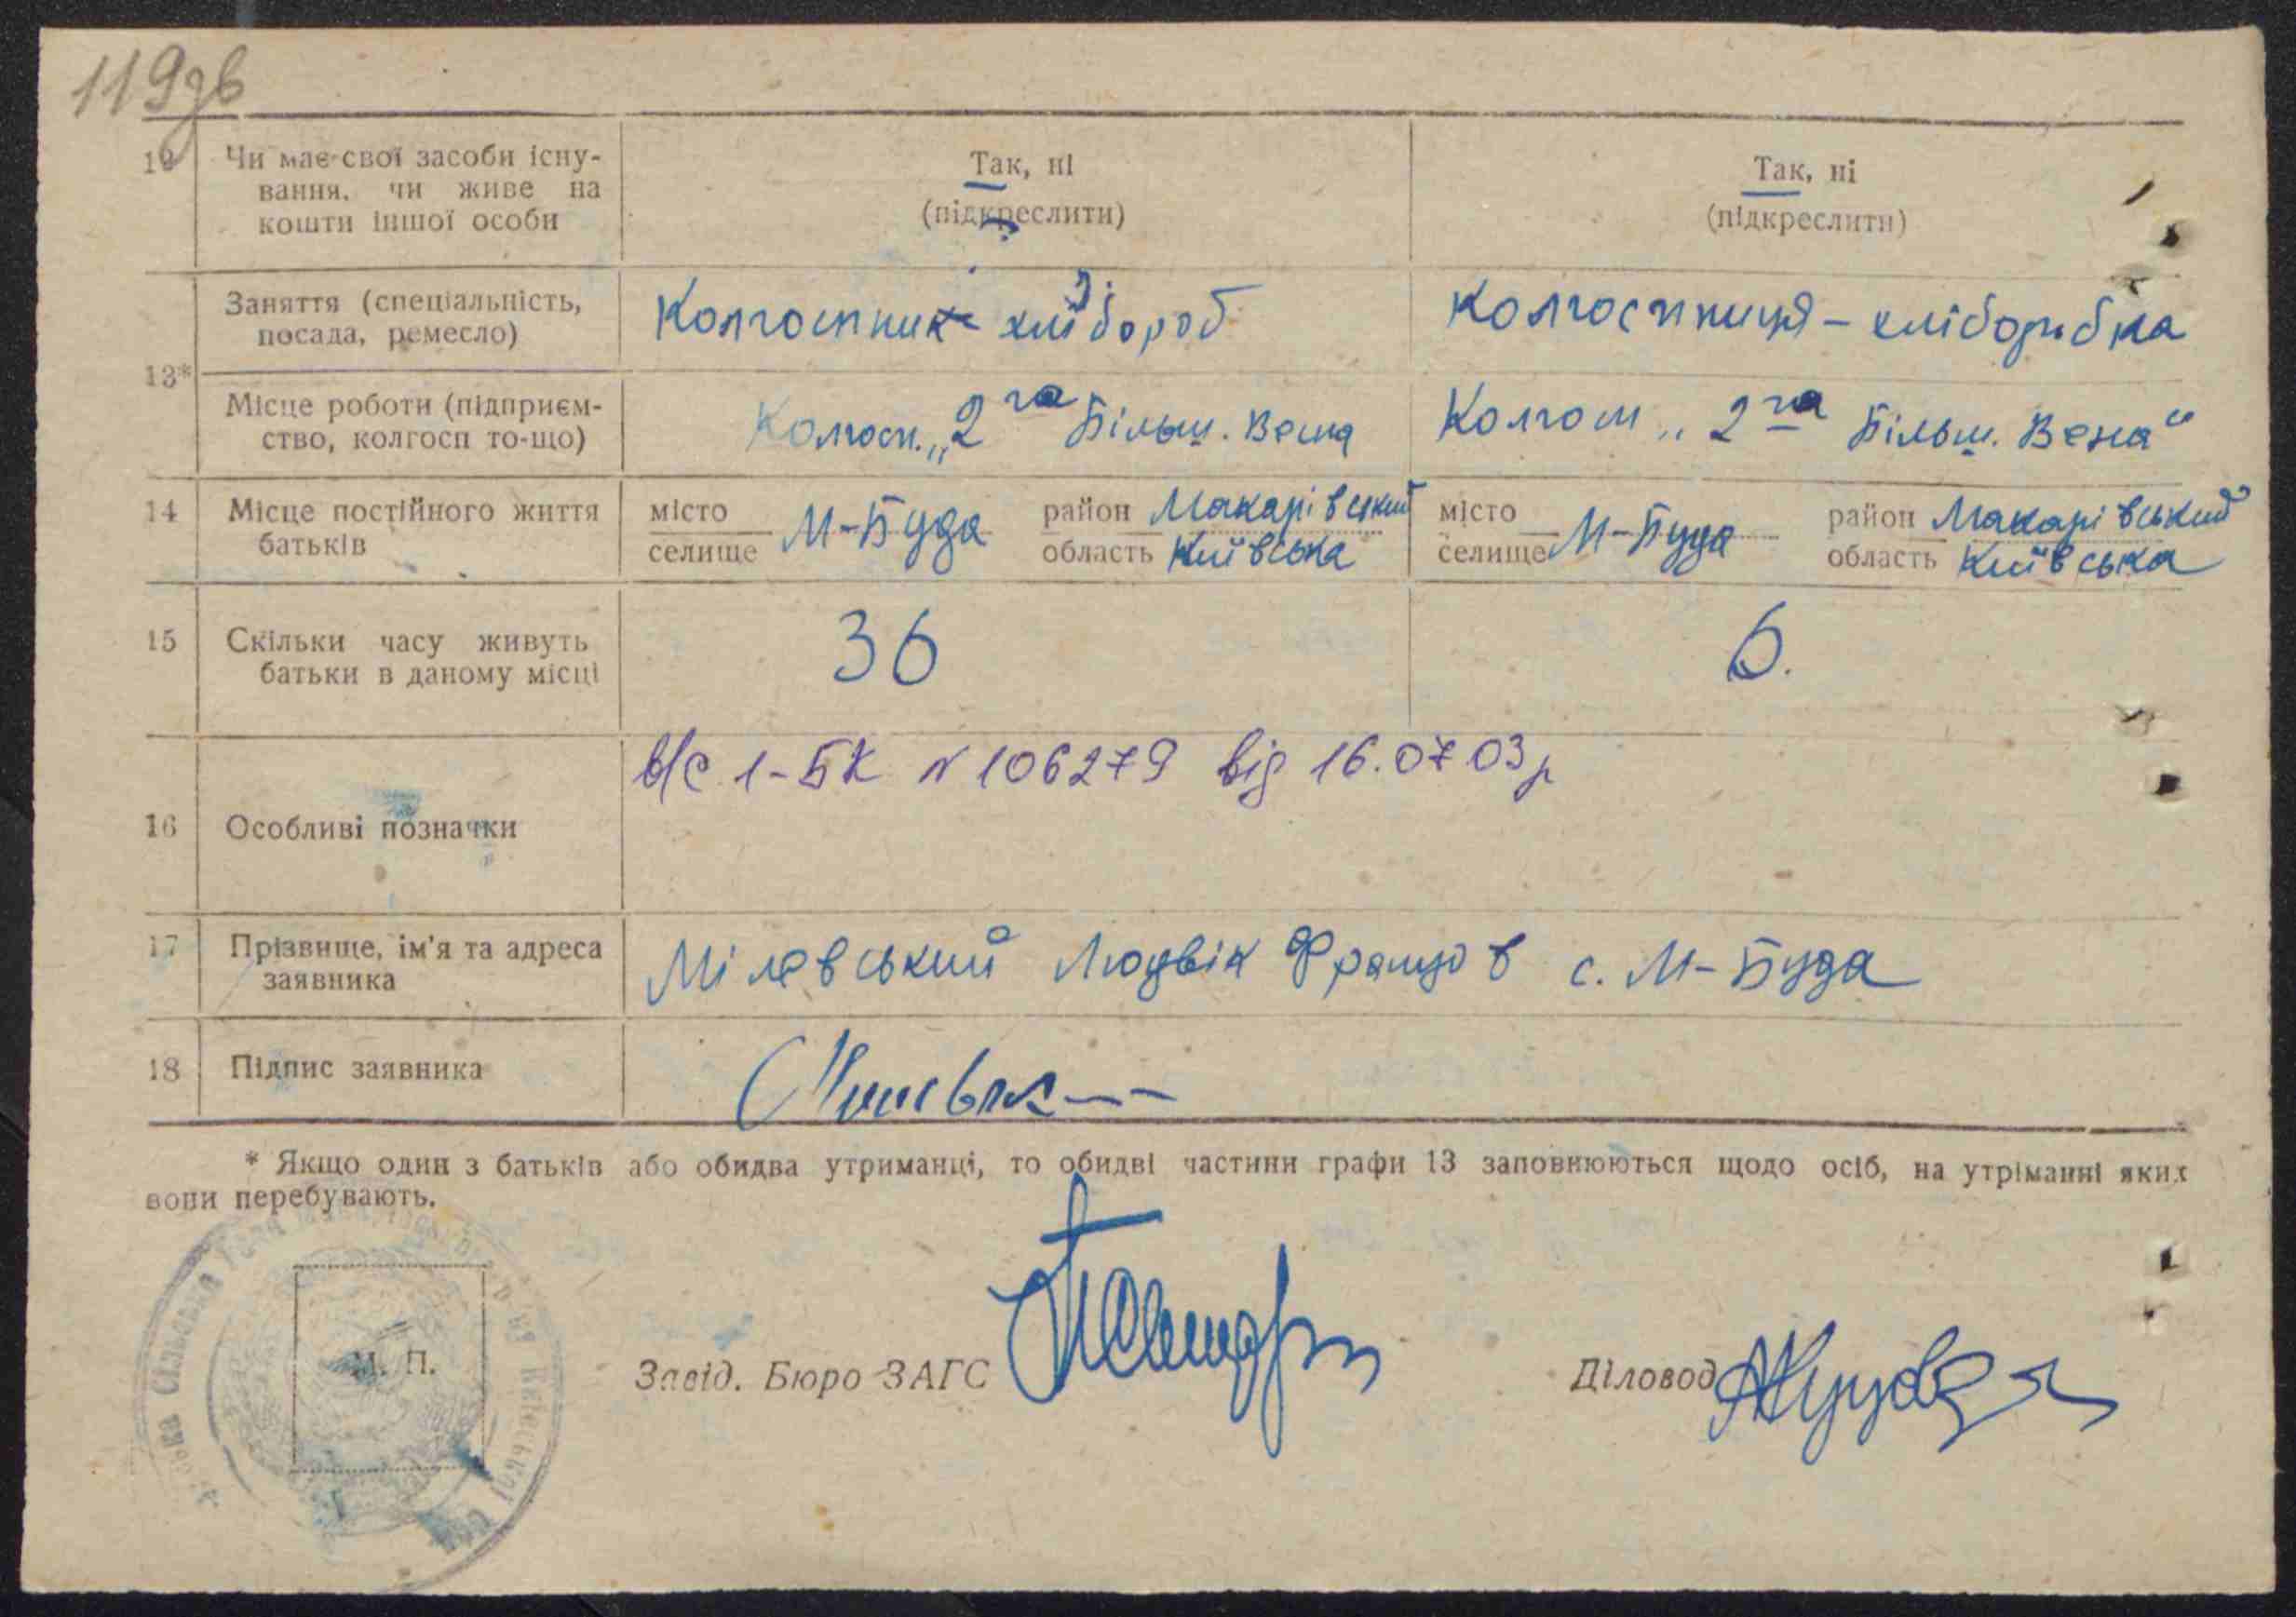 119зв
12 Чи має свої засоби існу-
вання, чи живе на
кошти іншої особи
Так, ні
(підкреслити)
Так, ні
(підкреслити)
13*
Заняття (спеціальність,
посада, ремесло)
Колгоспник хлібороб
Колгоспниця – хліборобка
Місце роботи (підприєм-
ство, колгосп то-що)
Колгосп. „2га Більш. Весна
Колгосп „2га Більш. Весна“
14 Місце постійного життя
батьків
місто
селище
М-Буда
район Макарівський
область Київська
місто
селище
М-Буда
район Макарівський
область Київська
15 Скільки часу живуть
батьки в даному місці
36
6.
16 Особливі позначки
в/с 1-БК N 106279 від 16.07 03р
17 Прізвище, ім'я та адреса
заявника
Мілевський Людвік Францов с. М-Буда
18 Підпис заявника
* Якщо один з батьків або обидва утриманці, то обидві частини графи 13 заповнюються щодо осіб, на утріманні яких
вони перебувають.
М. П.
Завід. Бюро ЗАГС
Діловод